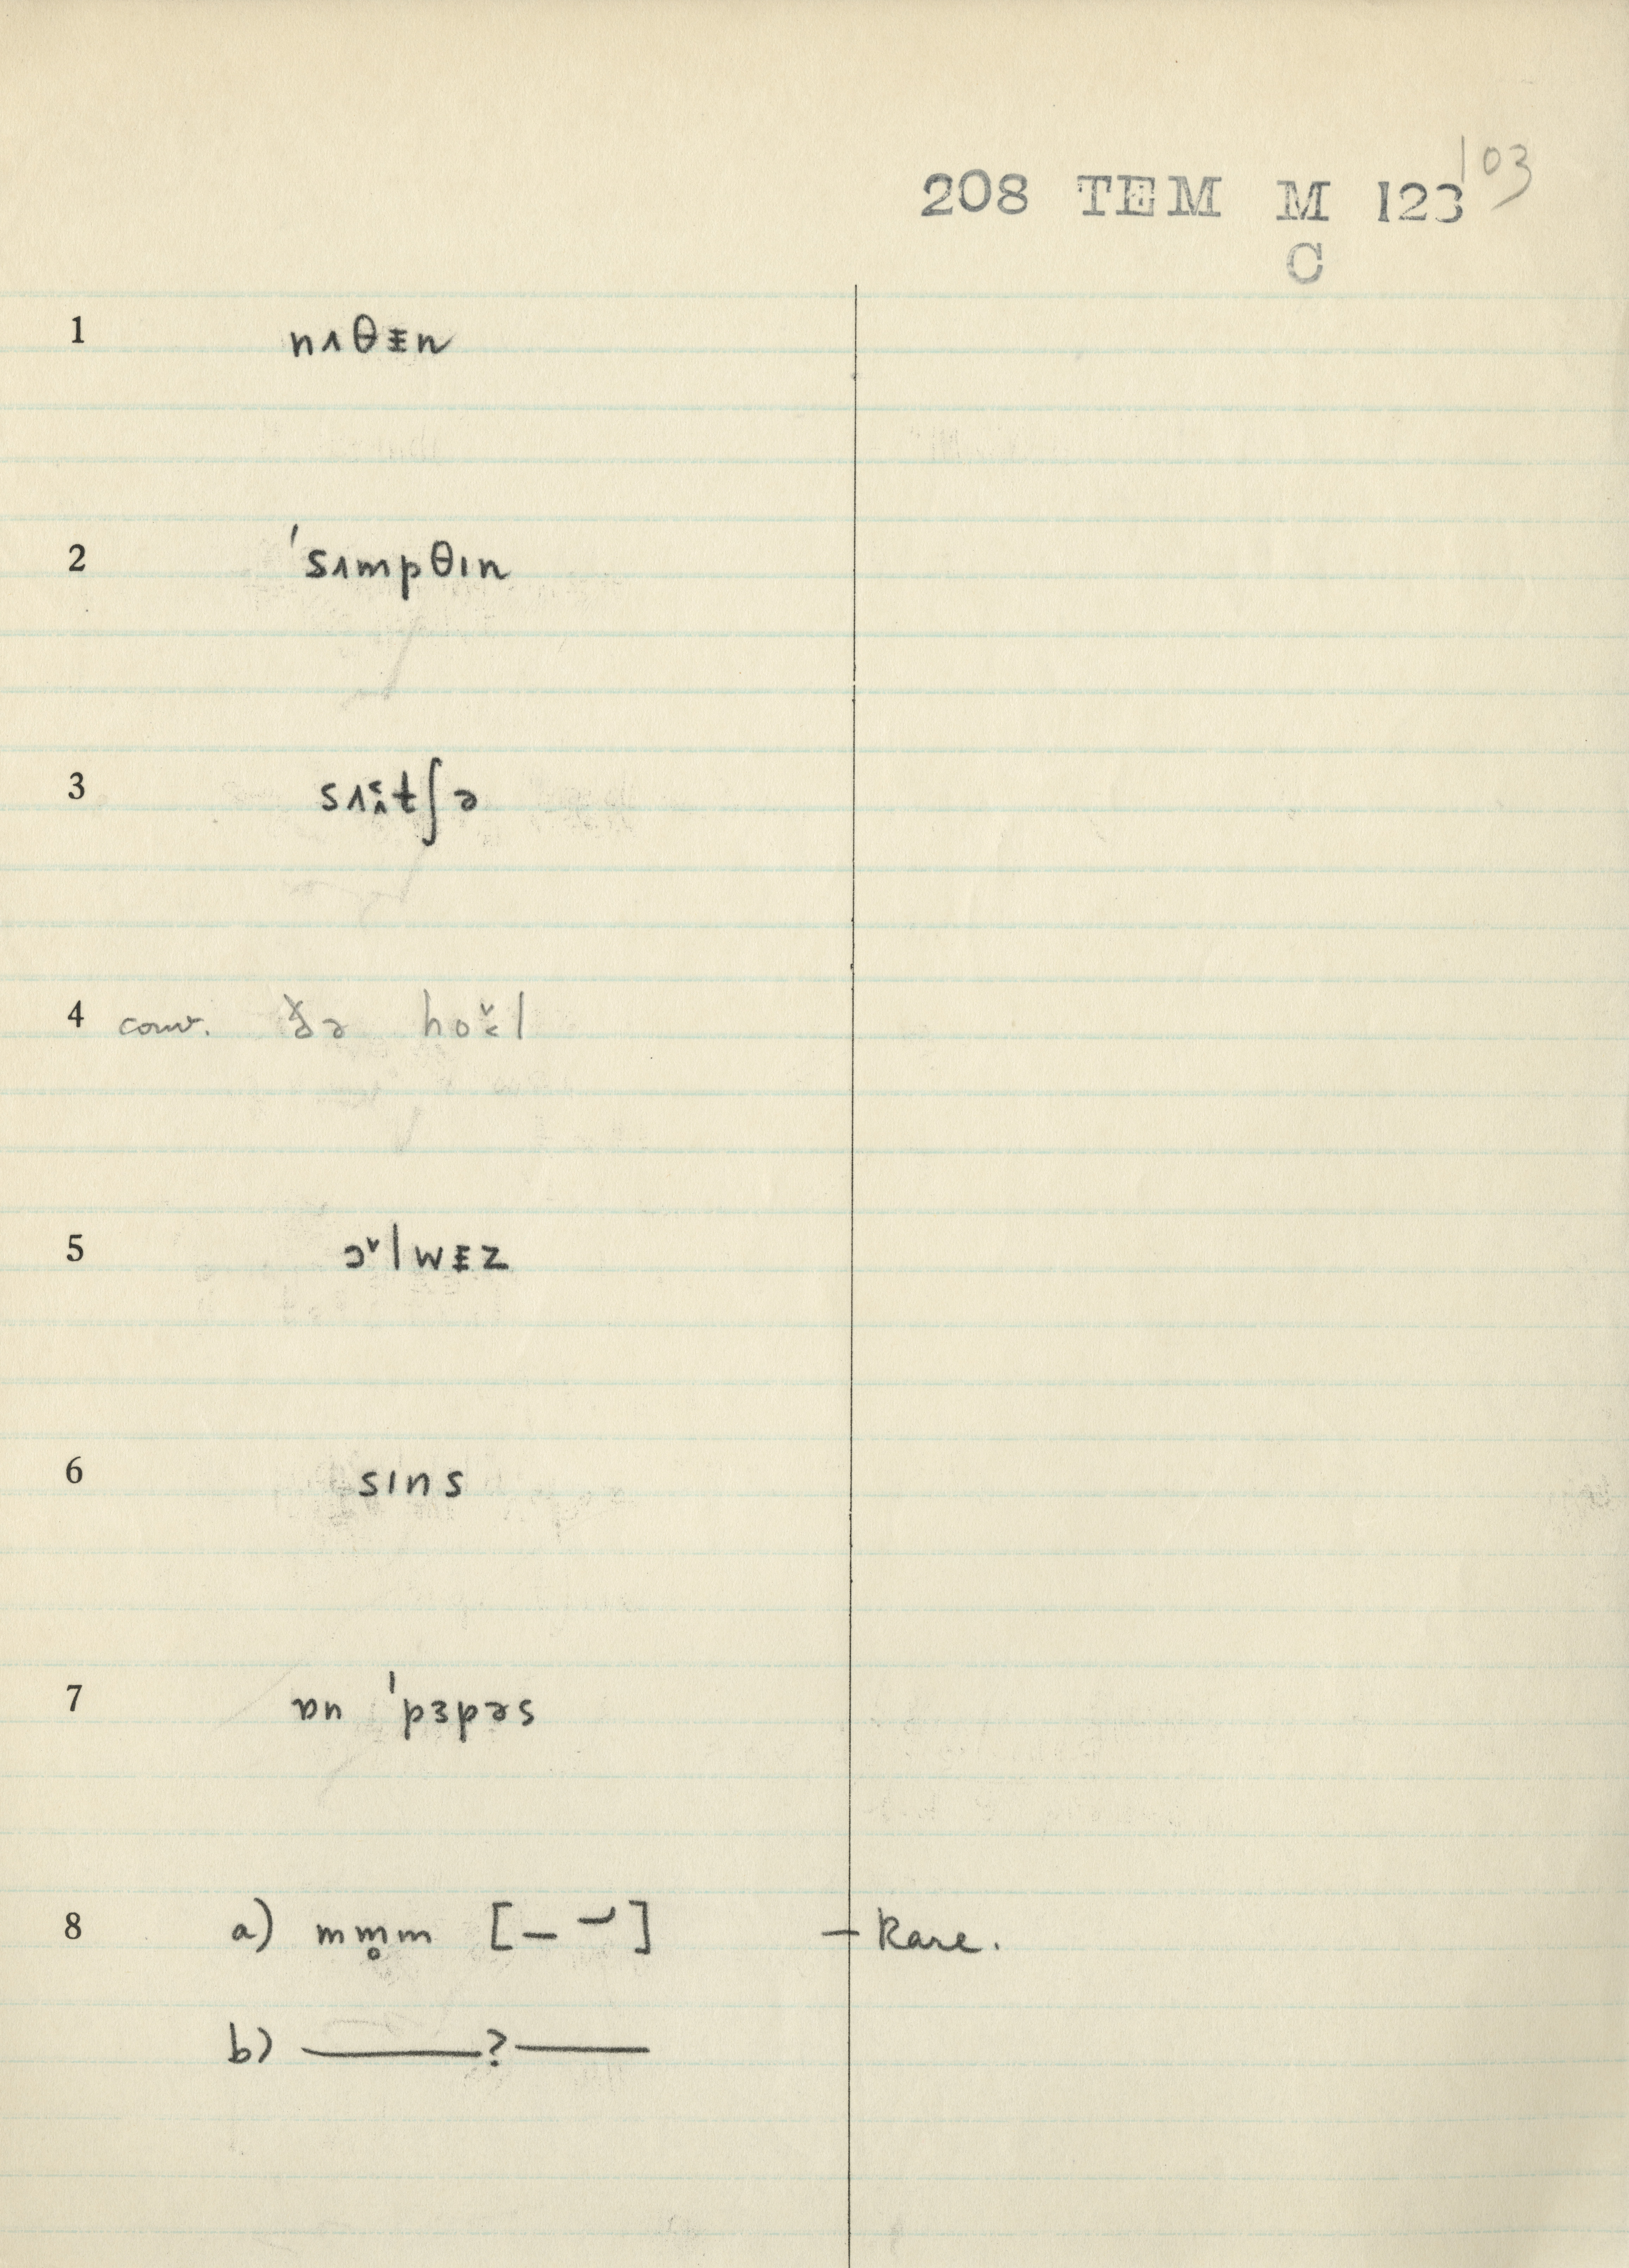 103
208 TEM M 123
C
1 nʌθᵻn
2 ˈsʌmpθɪn
3 sʌtʃə
4 conv. ðə hol
5 ɔ˅lwᵻz
6 sɪns
7 ɒn ˈpɜpəs
8 a) mm̥m [– –́] – Rare.
b) ———?———